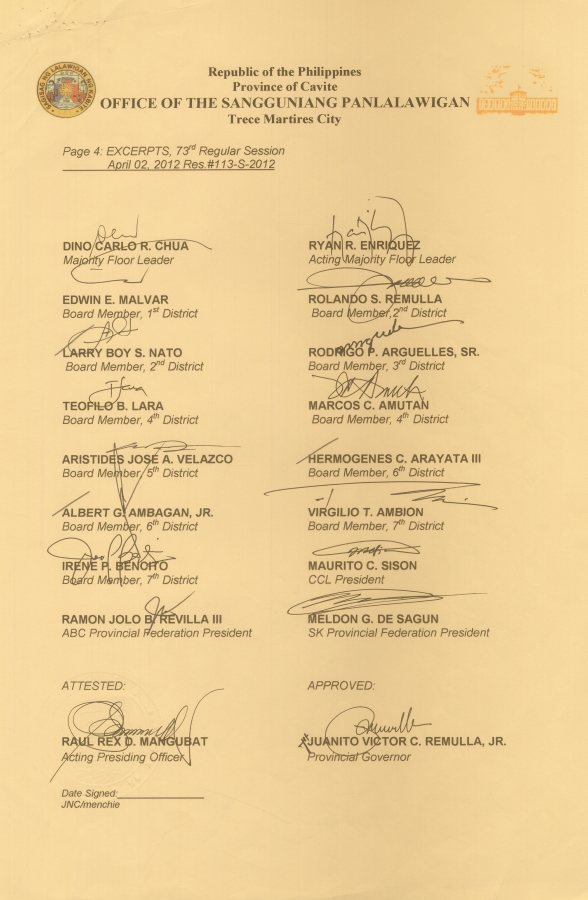 Republic of the Philippines
Province of Cavite
OFFICE OF THE SANGGUNIANG PANLALAWIGAN
Trece Martires City
Page 4: EXCERPTS, 73rd Regular Session
April 02, 2012 Res.#113-S-2012
DINO CARLO R. CHUA
Majority Floor Leader
RYAN R. ENRIQUEZ
Acting Majority Floor Leader
EDWIN E. MALVAR
Board Member, 1st District
ROLANDO S. REMULLA
Board Member, 2nd District
LARRY BOY S. NATO
Board Member, 2nd District
RODRIGO P. ARGUELLES, SR.
Board Member, 3rd District
TEOFILO B. LARA
Board Member, 4th District
MARCOS C. AMUTAN
Board Member, 4th District
ARISTIDES JOSE A. VELAZCO
Board Member, 5th District
HERMOGENES C. ARAYATA III
Board Member, 6th District
ALBERT G. AMBAGAN, JR.
Board Member, 6th District
VIRGILIO T. AMBION
Board Member, 7th District
IRENE P. BENCITO
Board Member, 7th District
MAURITO C. SISON
CCL President
RAMON JOLO B. REVILLA III
ABC Provincial Federation President
MELDON G. DE SAGUN
SK Provincial Federation President
ATTESTED:
APPROVED:
RAUL REX D. MANGUBAT
Acting Presiding Officer
JUANITO VICTOR C. REMULLA, JR.
Provincial Governor
Date Signed:
JNC/menchie